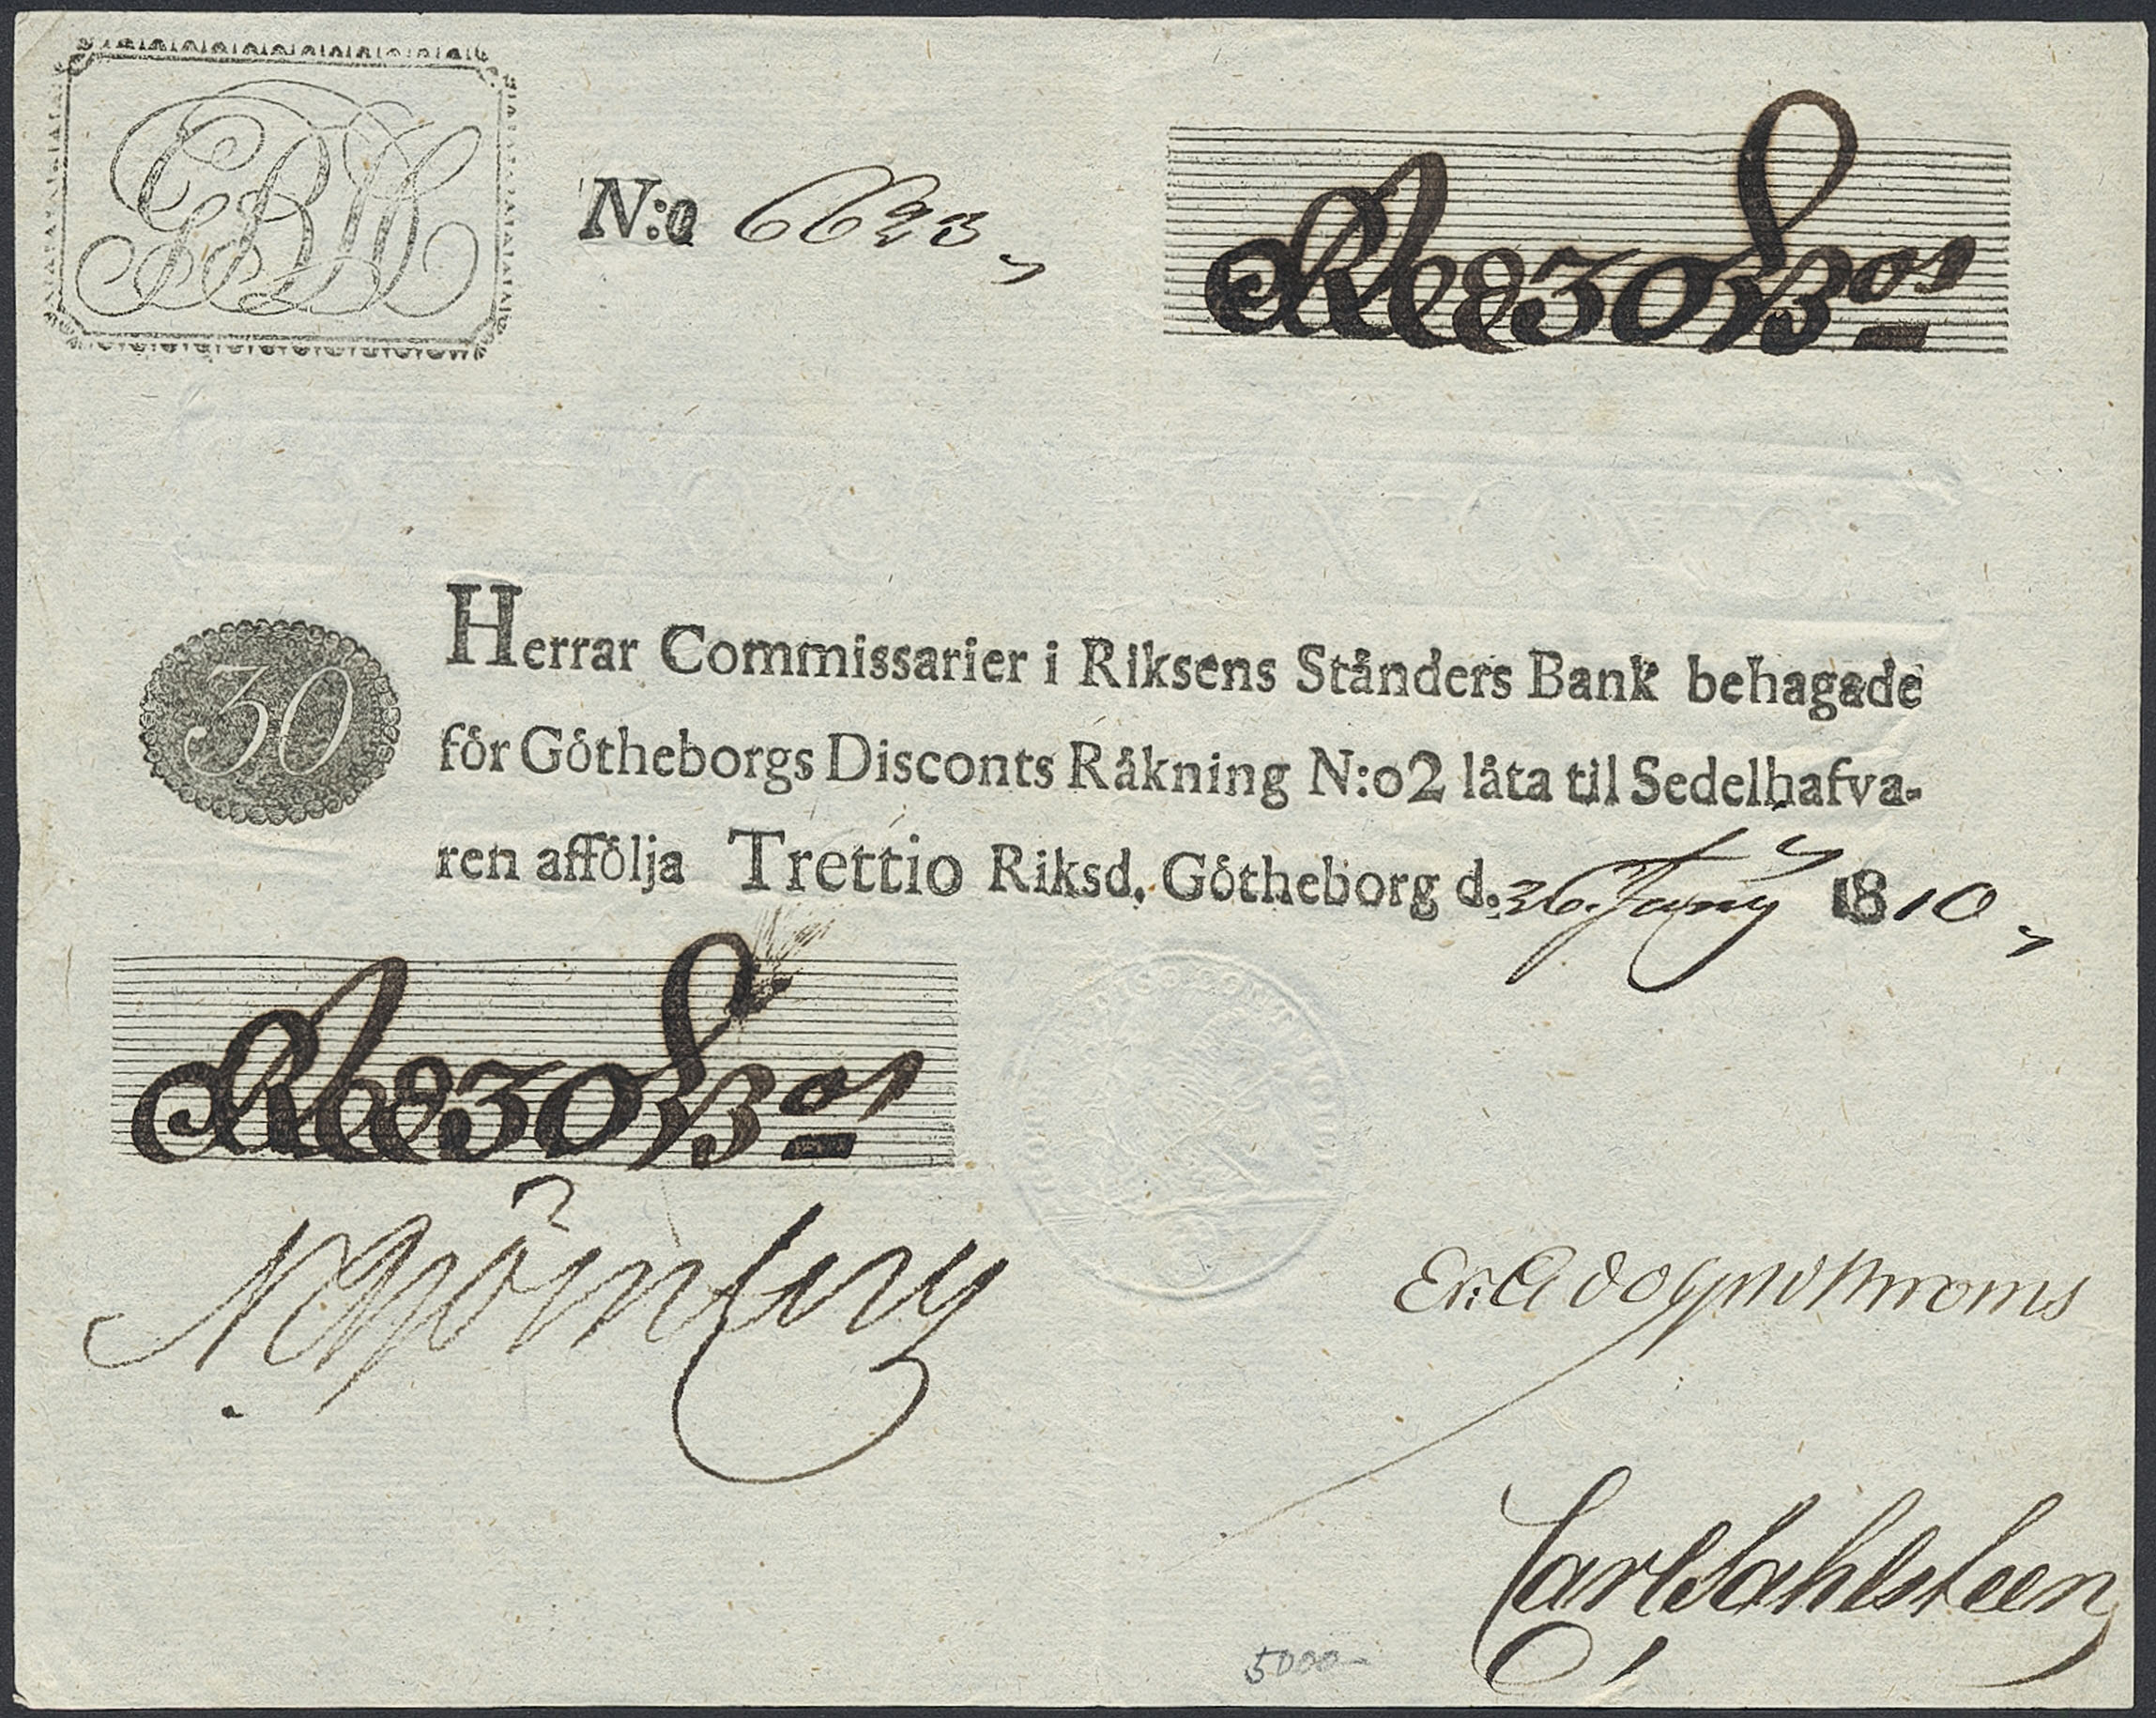 N:o 6623
Rdr 30 ß os
30
Herrar Commissarier i Riksens Ständers Bank behagade
för Götheborgs Disconts Räkning N:o 2 låta til Sedelhafva-
ren afföllja Trettio Riksd. Götheborg d. 26. Juny 1810,
Carl Sahlsteen
5000-